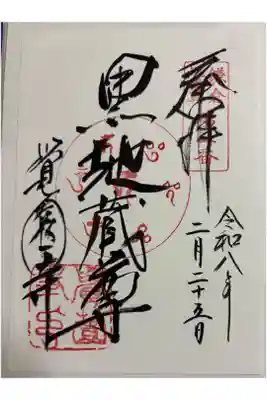 奉拝
令和八年
二月二十五日
黒地蔵尊
覚園寺